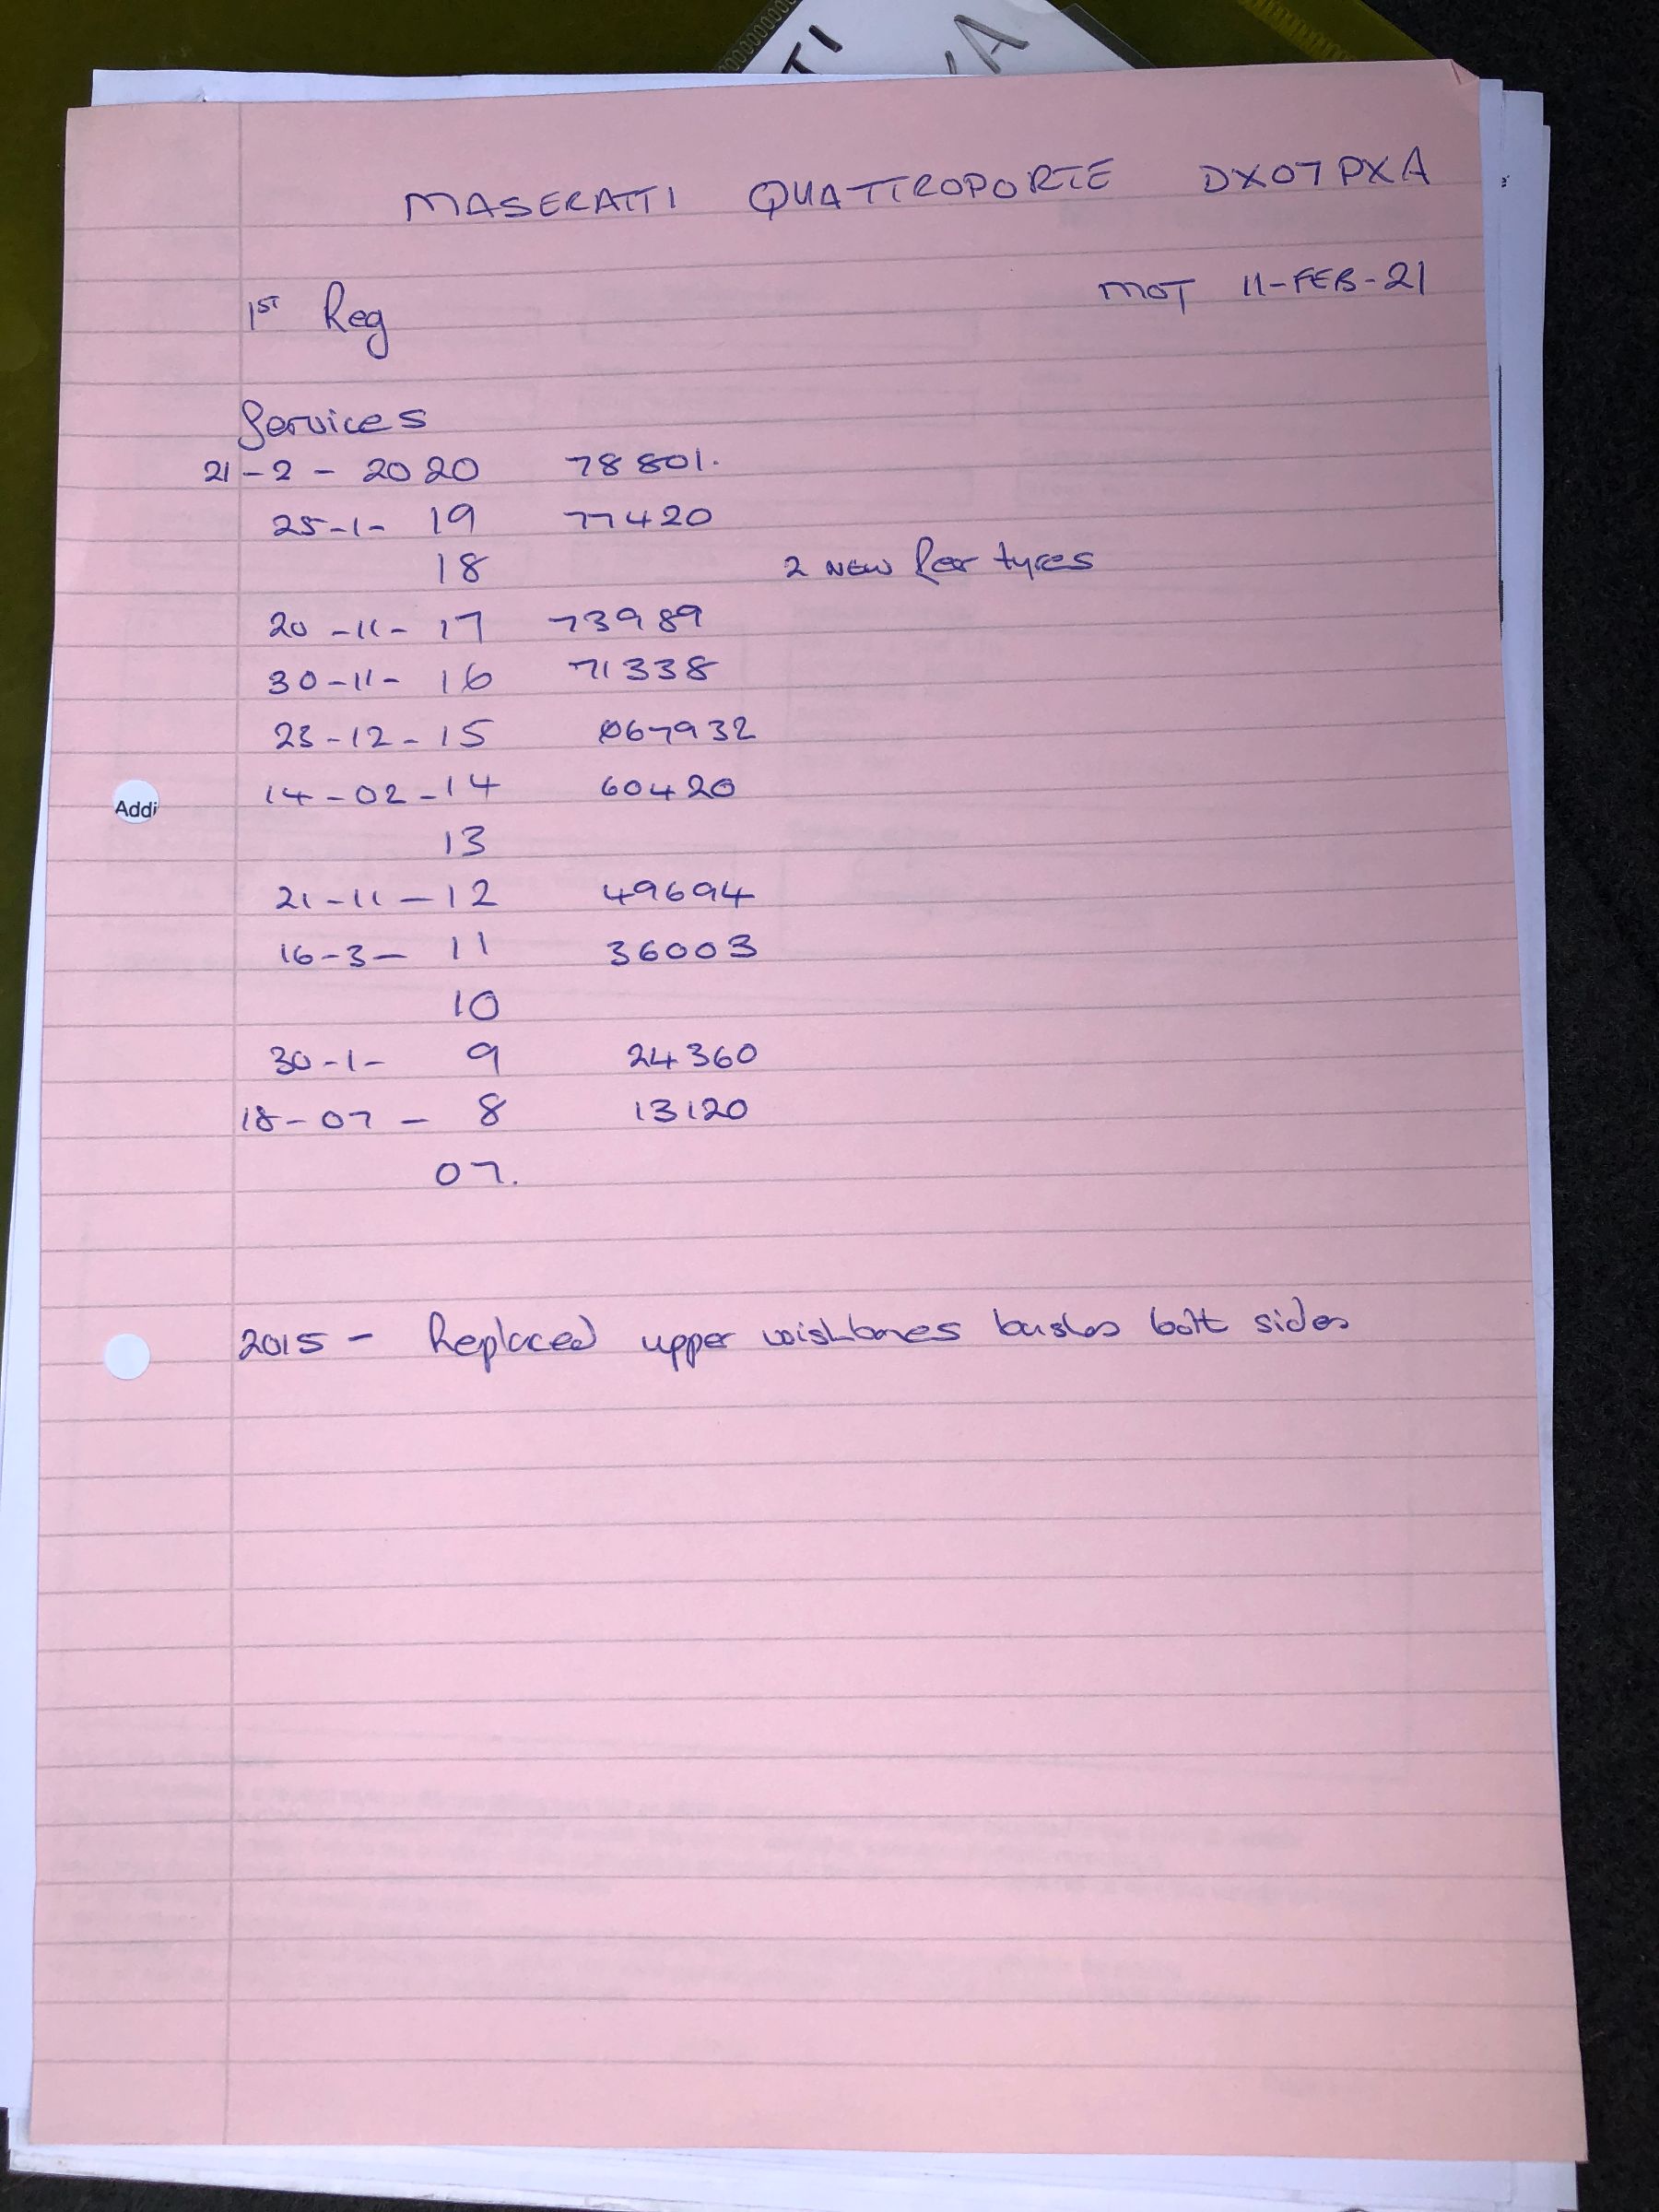 TI
XA
MASERATTI QUATTROPORTE DX07PXA
MOT 11-FEB-21
1ST Reg
Services
21-2-2020 78801.
25-1-19 77420
18 2 NEW Rer tyres
20-11-17 73989
30-11-16 71338
23-12-15 067932
14-02-14 60420
Addi
13
21-11-12 49694
16-3-11 36003
10
30-1-9 24360
18-07-8 13120
07.
2015 - Replaced upper wishbones bushes bott sides